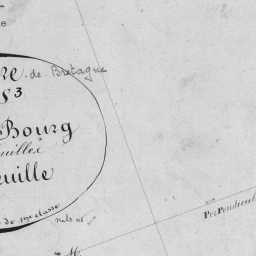 re de Bretagne
8 3
Bourg
uilles
euille
de 1re classe
Perpendicul
M.